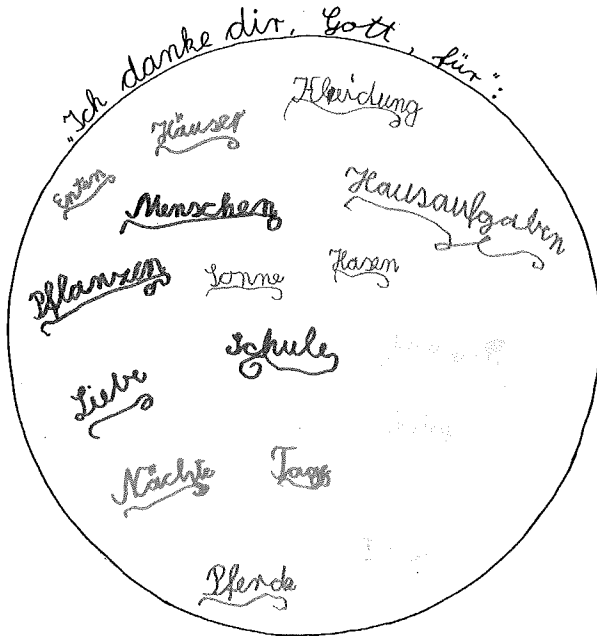 "Ich danke dir, Gott, für":
Kleidung
Häuser
Enten
Menschen
Hausaufgaben
Pflanzen
Sonne
Hasen
Schule
Liebe
Nächte
Tage
Pferde